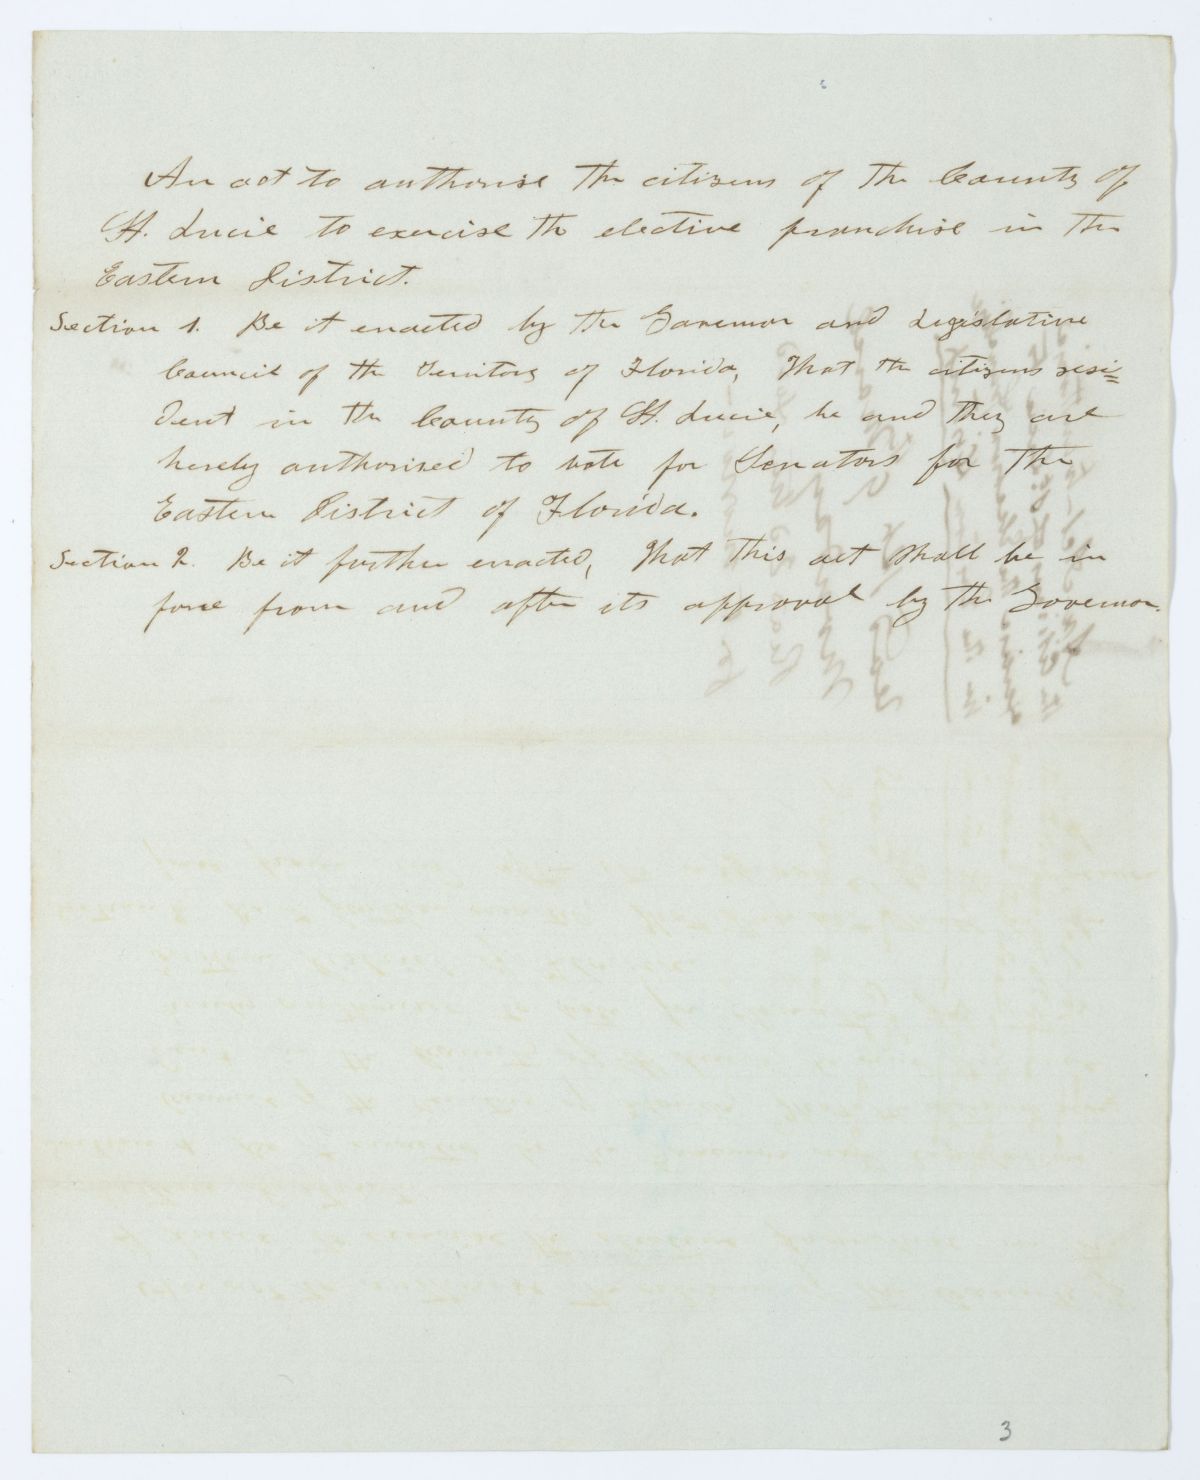 An act to authorise the citizens of the County of
St. Lucie to exercise the elective franchise in the
Eastern District.
Section 1. Be it enacted by the Governor and Legislative
Council of the Territory of Florida, That the citizens resi=
dent in the County of St. Lucie, be and they are
hereby authorised to vote for Senators for the
Eastern District of Florida.
Section 2. Be it further enacted, That this act shall be in
force from and after its approval by the Governor.
3